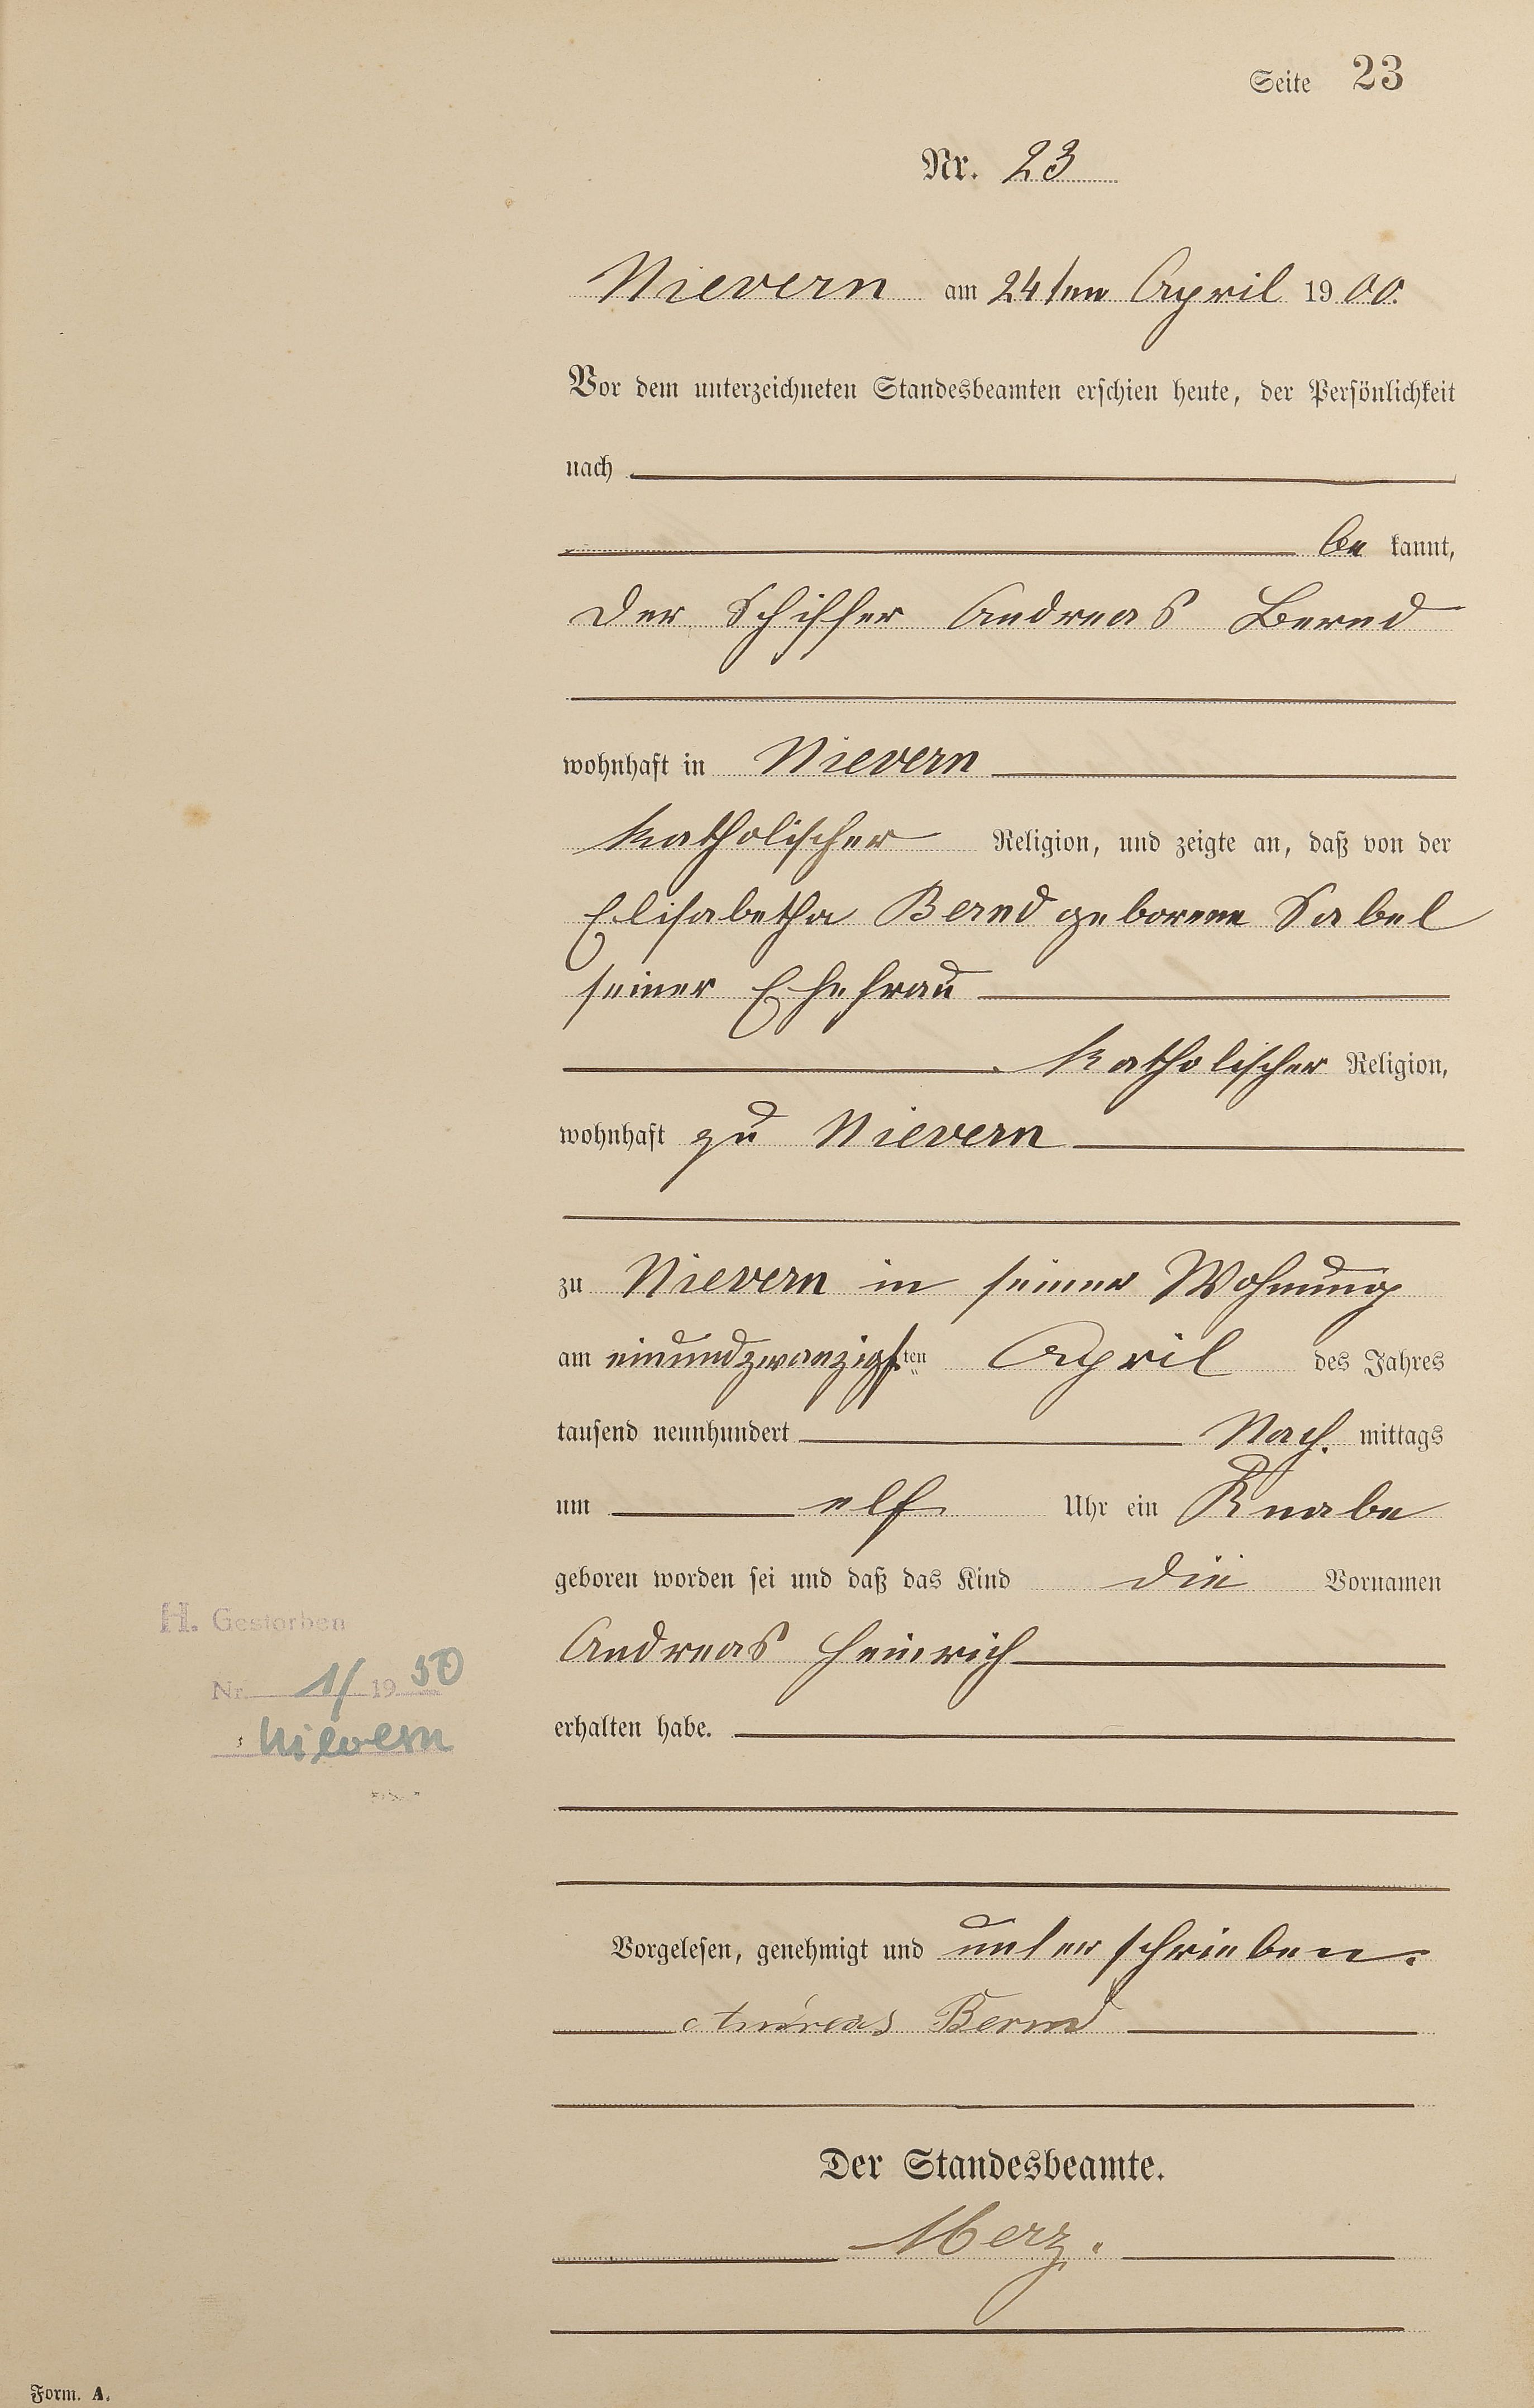 Seite 23
Nr. 23
Nievern am 24ten April 1900.
Vor dem unterzeichneten Standesbeamten erschien heute, der Persönlichkeit
nach
be kannt,
der Schiffer Andreas Bernd
wohnhaft in Nievern
katholischer Religion, und zeigte an, daß von der
Elisabetha Bernd geborene Sabel
seiner Ehefrau
katholischer Religion,
wohnhaft zu Nievern
zu Nievern in seiner Wohnung
am einundzwanzigsten April des Jahres
tausend neunhundert Nach mittags
um elf Uhr ein Knabe
geboren worden sei und daß das Kind die Vornamen
H. Gestorben
Andreas Heinrich
Nr. 1/1950
Nievern
erhalten habe.
Vorgelesen, genehmigt und unterschrieben.
Andreas Bernd
Der Standesbeamte.
Merz.
Form. A.